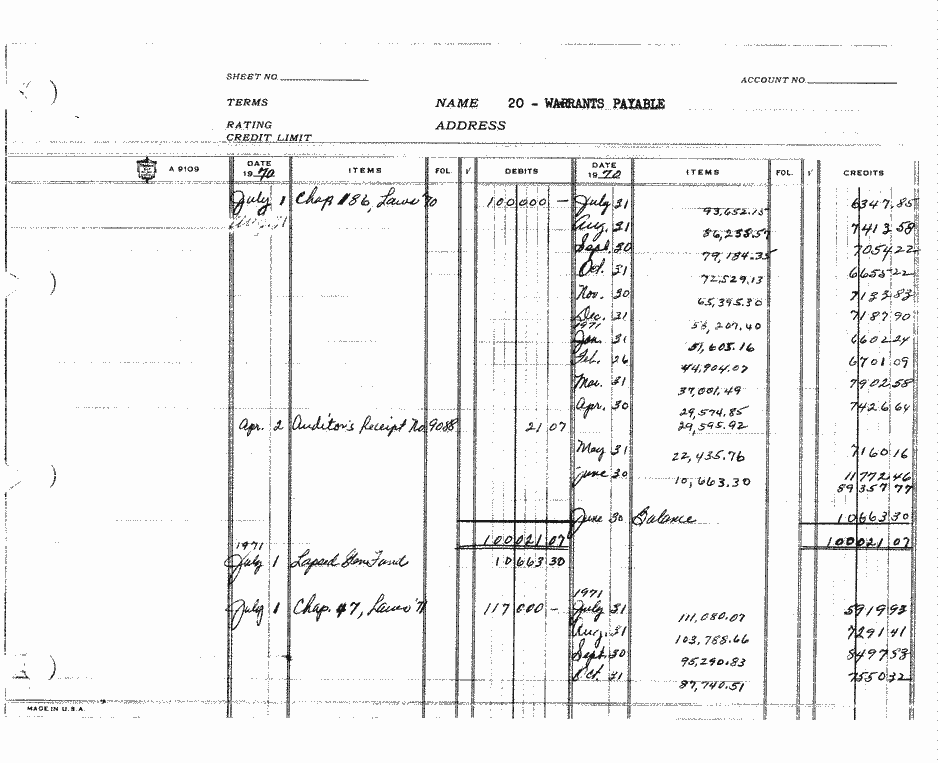 SHEET NO.
ACCOUNT NO.
TERMS NAME 20 - WARRANTS PAYABLE
RATING ADDRESS
CREDIT LIMIT
A 9109 DATE 1970 ITEMS FOL. √ DEBITS DATE 1970 ITEMS FOL. √ CREDITS
July 1 Chap 186, Laws '70 100000 — July 31 93,652.15 6347.85
Aug. 31 86,238.57 7413 58
Sept. 30 79,184.35 7054 22
Oct. 31 72,529.13 6655 22
Nov. 30 65,395.30 7133 83
Dec. 31 58,207.40 7187 90
1971
Jan. 31 51,605.16 6602 24
Feb. 26 44,904.07 6701 09
Mar. 31 37,001.49 7902 58
Apr. 30 29,574.85 7426 64
Apr. 2 Auditor's Receipt No. 9088 21 07 29,595.92
May 31 22,435.76 7160 16
June 30 10,663.30 11772 46
89357 77
June 30 Balance 10663 30
100021 07 100021 07
1971
July 1 Lapsed Gen Fund 10663 30
1971
July 1 Chap. #7, Laws '71 117000 - July 31 111,080.07 5919 93
Aug. 31 103,788.66 7291 41
Sept. 30 95,290.83 8497 83
Oct. 31 87,740.51 7550 32
MADE IN U.S.A.